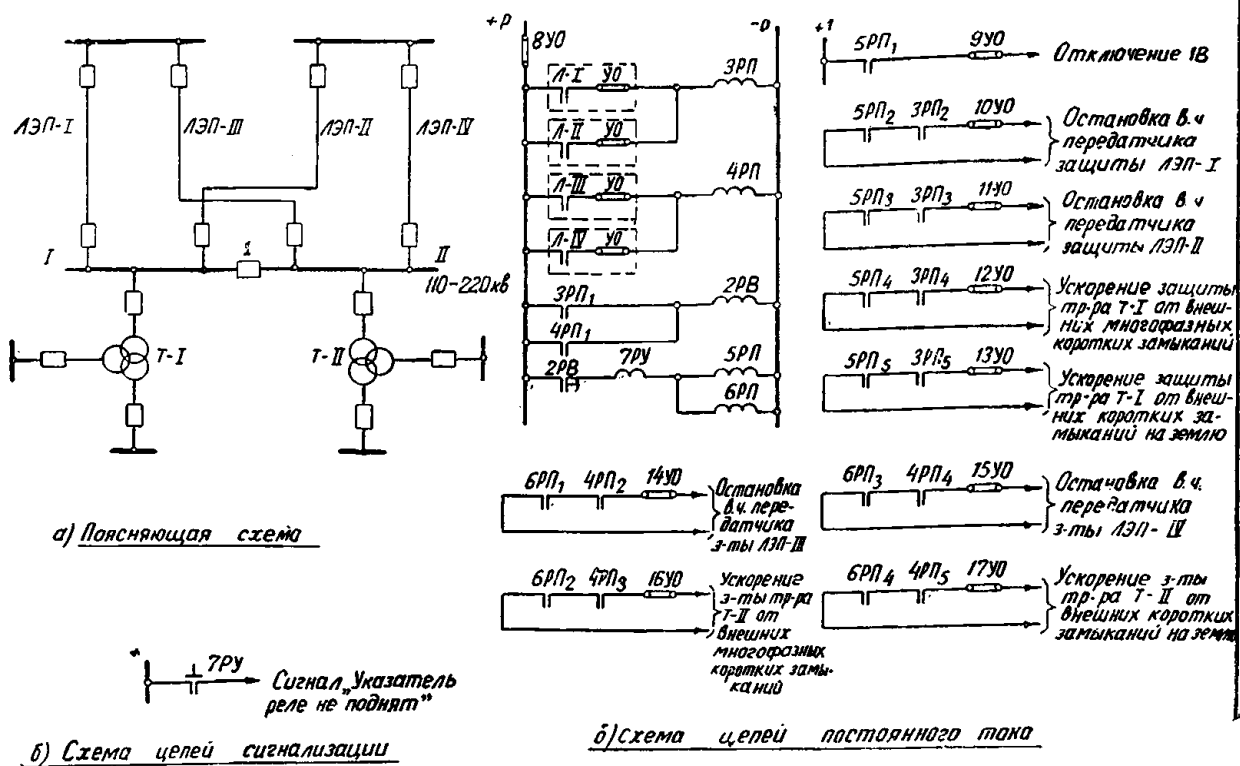 ЛЭП-I
ЛЭП-III
ЛЭП-II
ЛЭП-IV
1
I
II
110-220кв
Т-I
Т-II
а) Поясняющая схема
+
7РУ
Сигнал „Указатель
реле не поднят"
б) Схема цепей сигнализации
+Р
-Р
8УО
Л-I УО
3РП
Л-II УО
Л-III УО
4РП
Л-IV УО
3РП1
2РВ
4РП1
2РВ
7РУ
5РП
6РП
+1
5РП1 9УО
Отключение 1В
5РП2 3РП2 10УО
Остановка в.ч
передатчика
защиты ЛЭП-I
5РП3 3РП3 11УО
Остановка в.ч
передатчика
защиты ЛЭП-II
5РП4 3РП4 12УО
Ускорение защиты
тр-ра Т-I от внеш-
них многофазных
коротких замыканий
5РП5 3РП5 13УО
Ускорение защиты
тр-ра Т-I от внеш-
них коротких за-
мыканий на землю
6РП1 4РП2 14УО
Остановка
в.ч. пере-
датчика
з-ты ЛЭП-III
6РП3 4РП4 15УО
Остановка в.ч.
передатчика
з-ты ЛЭП-IV
6РП2 4РП3 16УО
Ускорение
з-ты тр-ра
Т-II от
внешних
многофазных
коротких замы-
каний
6РП4 4РП5 17УО
Ускорение з-ты
тр-ра Т-II от
внешних коротких
замыканий на землю
б) Схема цепей постоянного тока